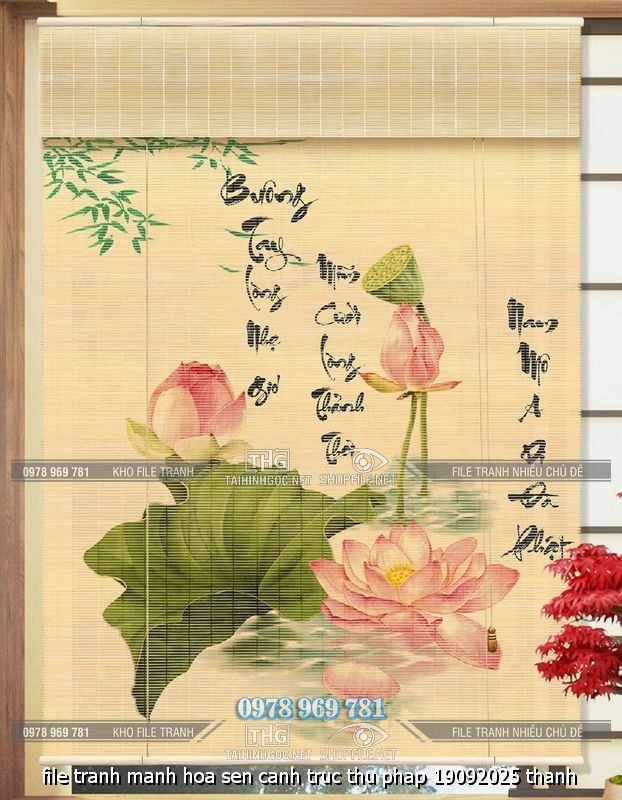 Buông
Tay
Lòng
Nhẹ
Gió
Mỉm
Cười
Lòng
Thảnh
Thơi
Nam
Mô
A
Di
Đà
Phật
0978 969 781 KHO FILE TRANH THG TAIHINHGOC.NET SHOPFILE.NET FILE TRANH NHIỀU CHỦ ĐỀ
0978 969 781
0978 969 781 KHO FILE TRANH THG TAIHINHGOC.NET SHOPFILE.NET FILE TRANH NHIỀU CHỦ ĐỀ
file tranh manh hoa sen canh truc thu phap 19092025 thanh